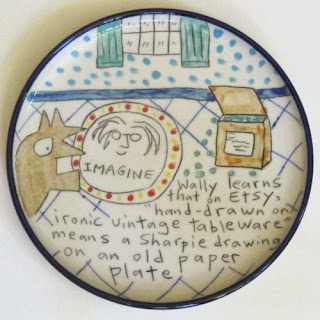 IMAGINE
Wally learns
that on ETSY,
"hand-drawn on
ironic vintage tableware"
means a Sharpie drawing
on an old paper
plate!